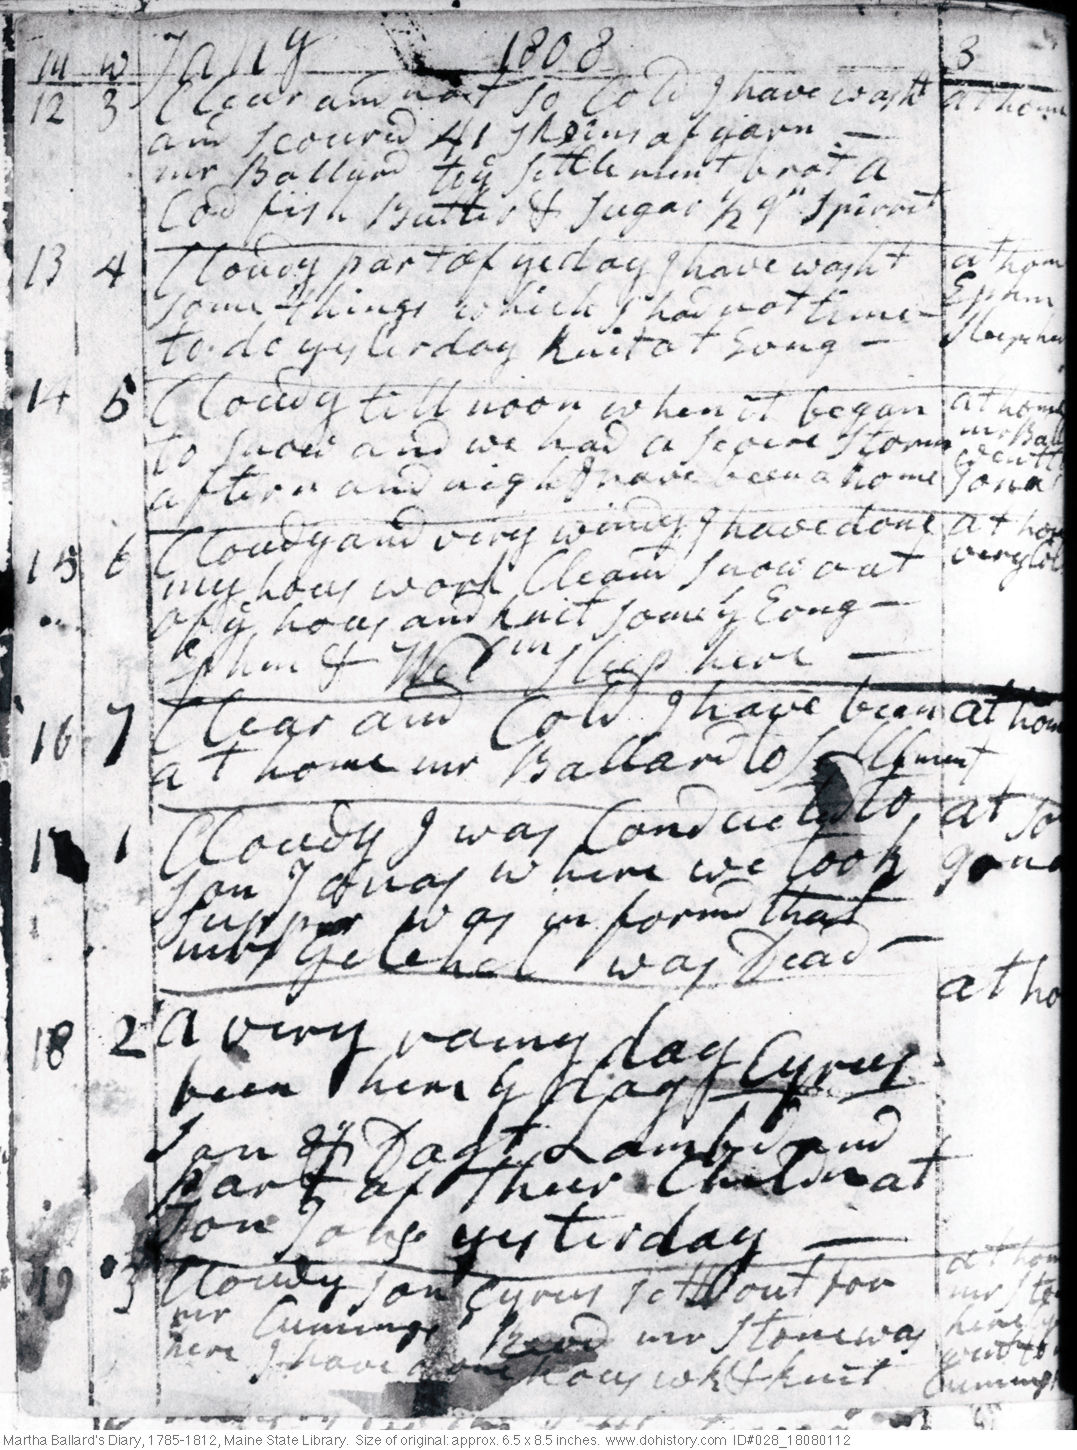 m w Jany 1808 8
12 3 Clear and not so Cold I have washt at home
and scoured 41 skeins of yarn —
mr Ballard to ye settlement brot a
Cod fish Butter & Sugar ½ qt Spirrit
13 4 Cloudy part of ye day I have washt at hom
some things which I had not time Ephm
to do yesterday knit at Evng —
14 5 Cloudy till noon when it began at home
to snow and we had a severe storm mr Ball
aftern and night I have been at home
15 6 Cloudy and very windy I have done at hom
my hous work Cleand snow out very Col
of ye hous and knit some ye Evng —
Ephm & Wm sleep here —
16 7 Clear and Cold I have been at hom
at home mr Ballard to Settlment
17 1 Cloudy I was Conducted to at so
son Jonas where we took
supper was informd that
mrs Getchel was Dead —
18 2 a very rainy day Cyrus at ho
been here ys day
son & Dagt Lambd and
part of their Childn at
son Jons yesterday —
19 3 Cloudy son Cyrus sett out for at hom
mr Cummings mr Stone was mr Sto
here I have done hous wk & knit
Cummings
Martha Ballard's Diary, 1785-1812, Maine State Library. Size of original: approx. 6.5 x 8.5 inches. www.dohistory.com ID#028_18080112